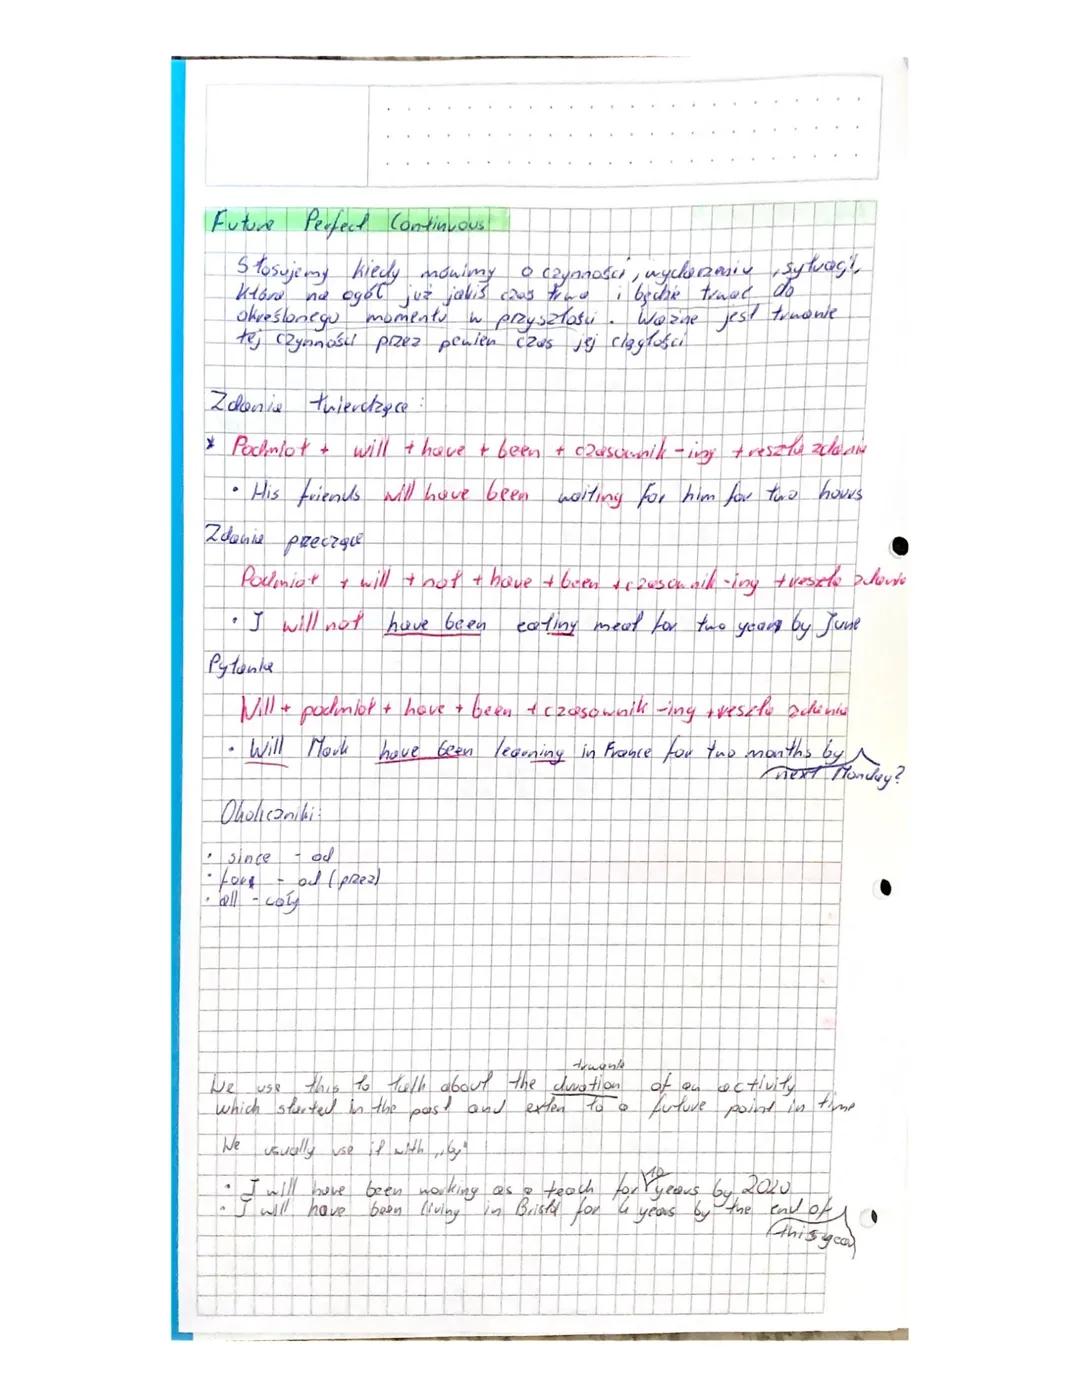 Future Perfect Continuous
Stosujemy kiedy mówimy o czynności, wydarzeniu, sytuacji,
która na ogół już jakiś czas trwa i będzie trwać do
określonego momentu w przyszłości. Ważne jest trwanie
tej czynności przez pewien czas jej ciągłości
Zdania twierdzące:
* Podmiot + will + have + been + czasownik -ing + reszta zdania
• His friends will have been waiting for him for two hours
Zdania przeczące
Podmiot + will + not + have + been + czasownik -ing + reszta zdania
• I will not have been eating meat for two years by June
Pytania
Will + podmiot + have + been + czasownik -ing + reszta zdania
• Will Mark have been learning in France for two months by
next Monday?
Okoliczniki:
• since - od
• - od (przez)
• all - cały
trwanie
We use this to talk about the duration of an activity
which started in the past and exten to a future point in time
We usually use it with „by"
• I will have been working as a teach for 10 years by 2020
• I will have been living in Bristol for 4 years by the end of
this year